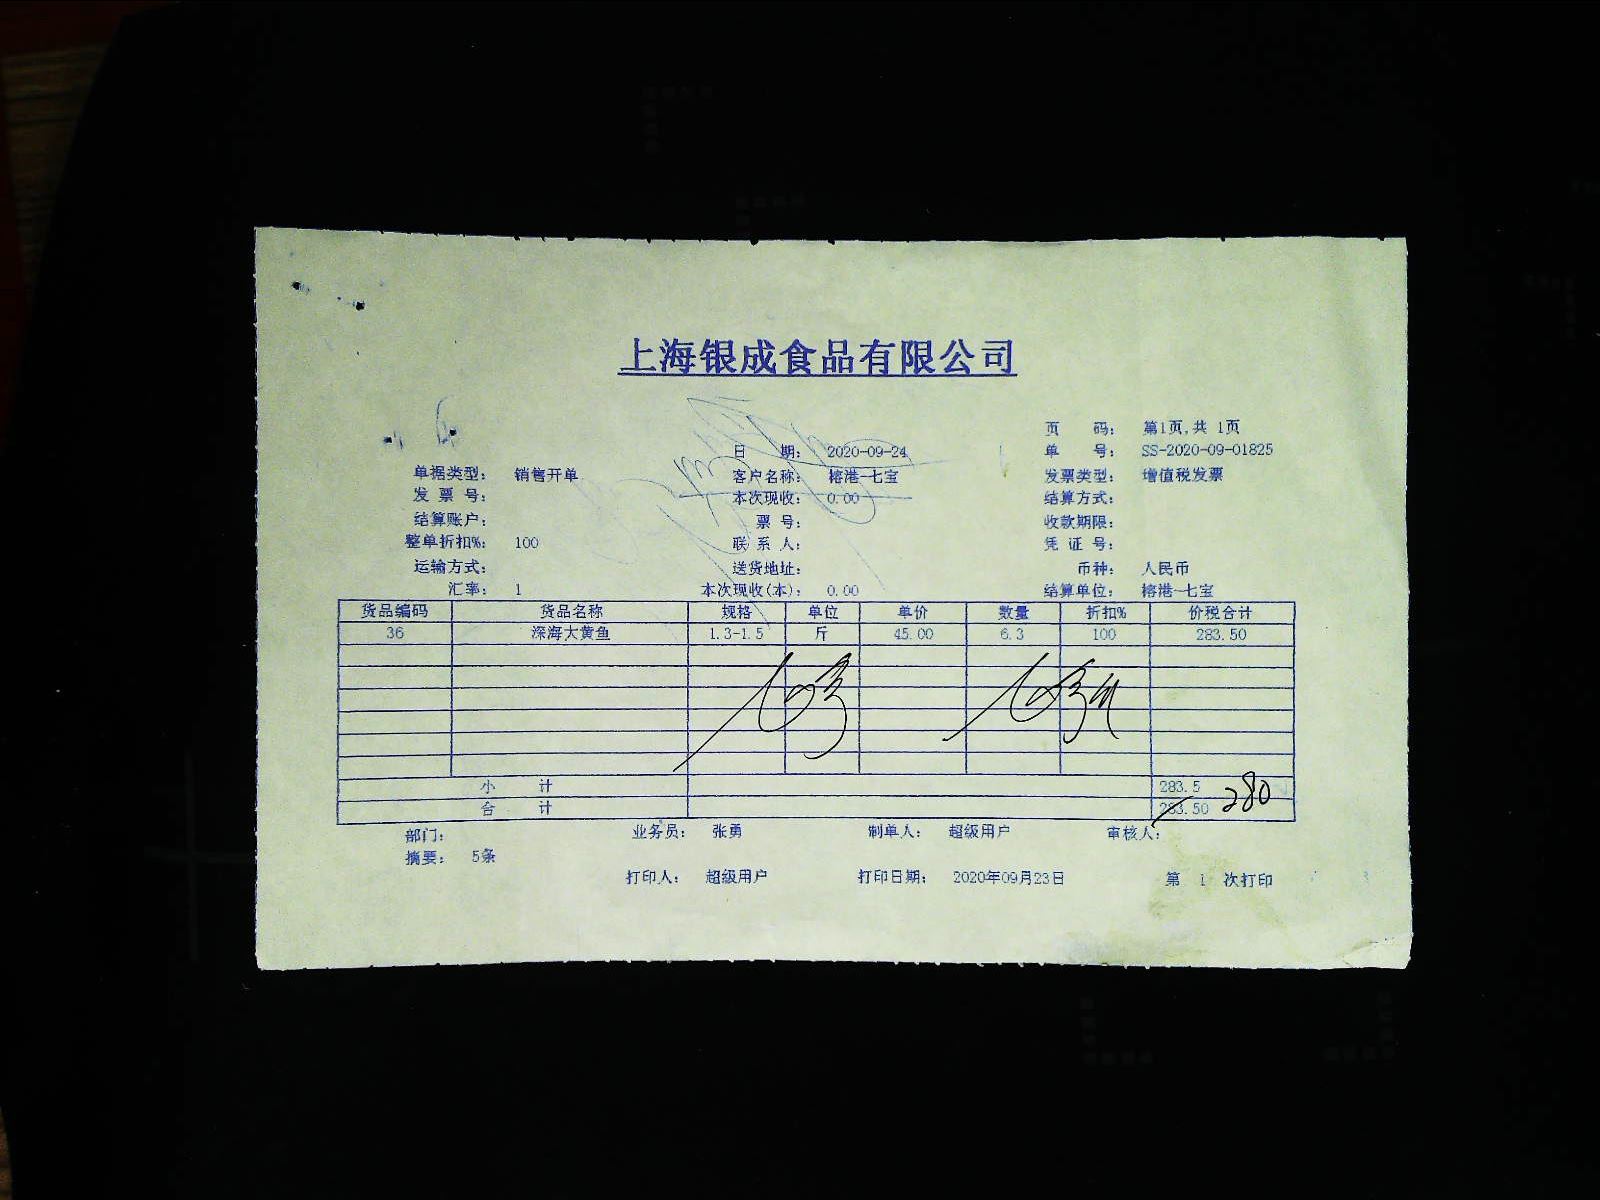 上海银成食品有限公司
页 码: 第1页,共 1页
日 期: 2020-09-24 单 号: SS-2020-09-01825
单据类型: 销售开单 客户名称: 榕港-七宝 发票类型: 增值税发票
发 票 号: 本次现收: 0.00 结算方式:
结算账户: 票 号: 收款期限:
整单折扣%: 100 联 系 人: 凭 证 号:
运输方式: 送货地址: 币种: 人民币
汇率: 1 本次现收(本): 0.00 结算单位: 榕港-七宝
货品编码 货品名称 规格 单位 单价 数量 折扣% 价税合计
36 深海大黄鱼 1.3-1.5 斤 45.00 6.3 100 283.50
小 计 283.5
合 计 283.50 280
部门: 业务员: 张勇 制单人: 超级用户 审核人:
摘要: 5条
打印人: 超级用户 打印日期: 2020年09月23日 第 1 次打印